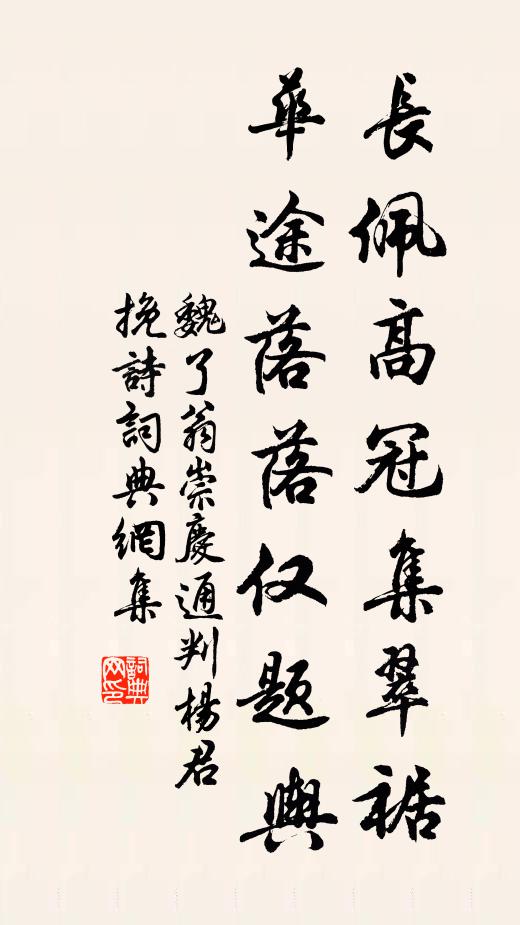 長佩高冠集翠裾
華途落落仅题輿
魏了翁崇慶通判楊君
挽詩詞典網集
詞典网印